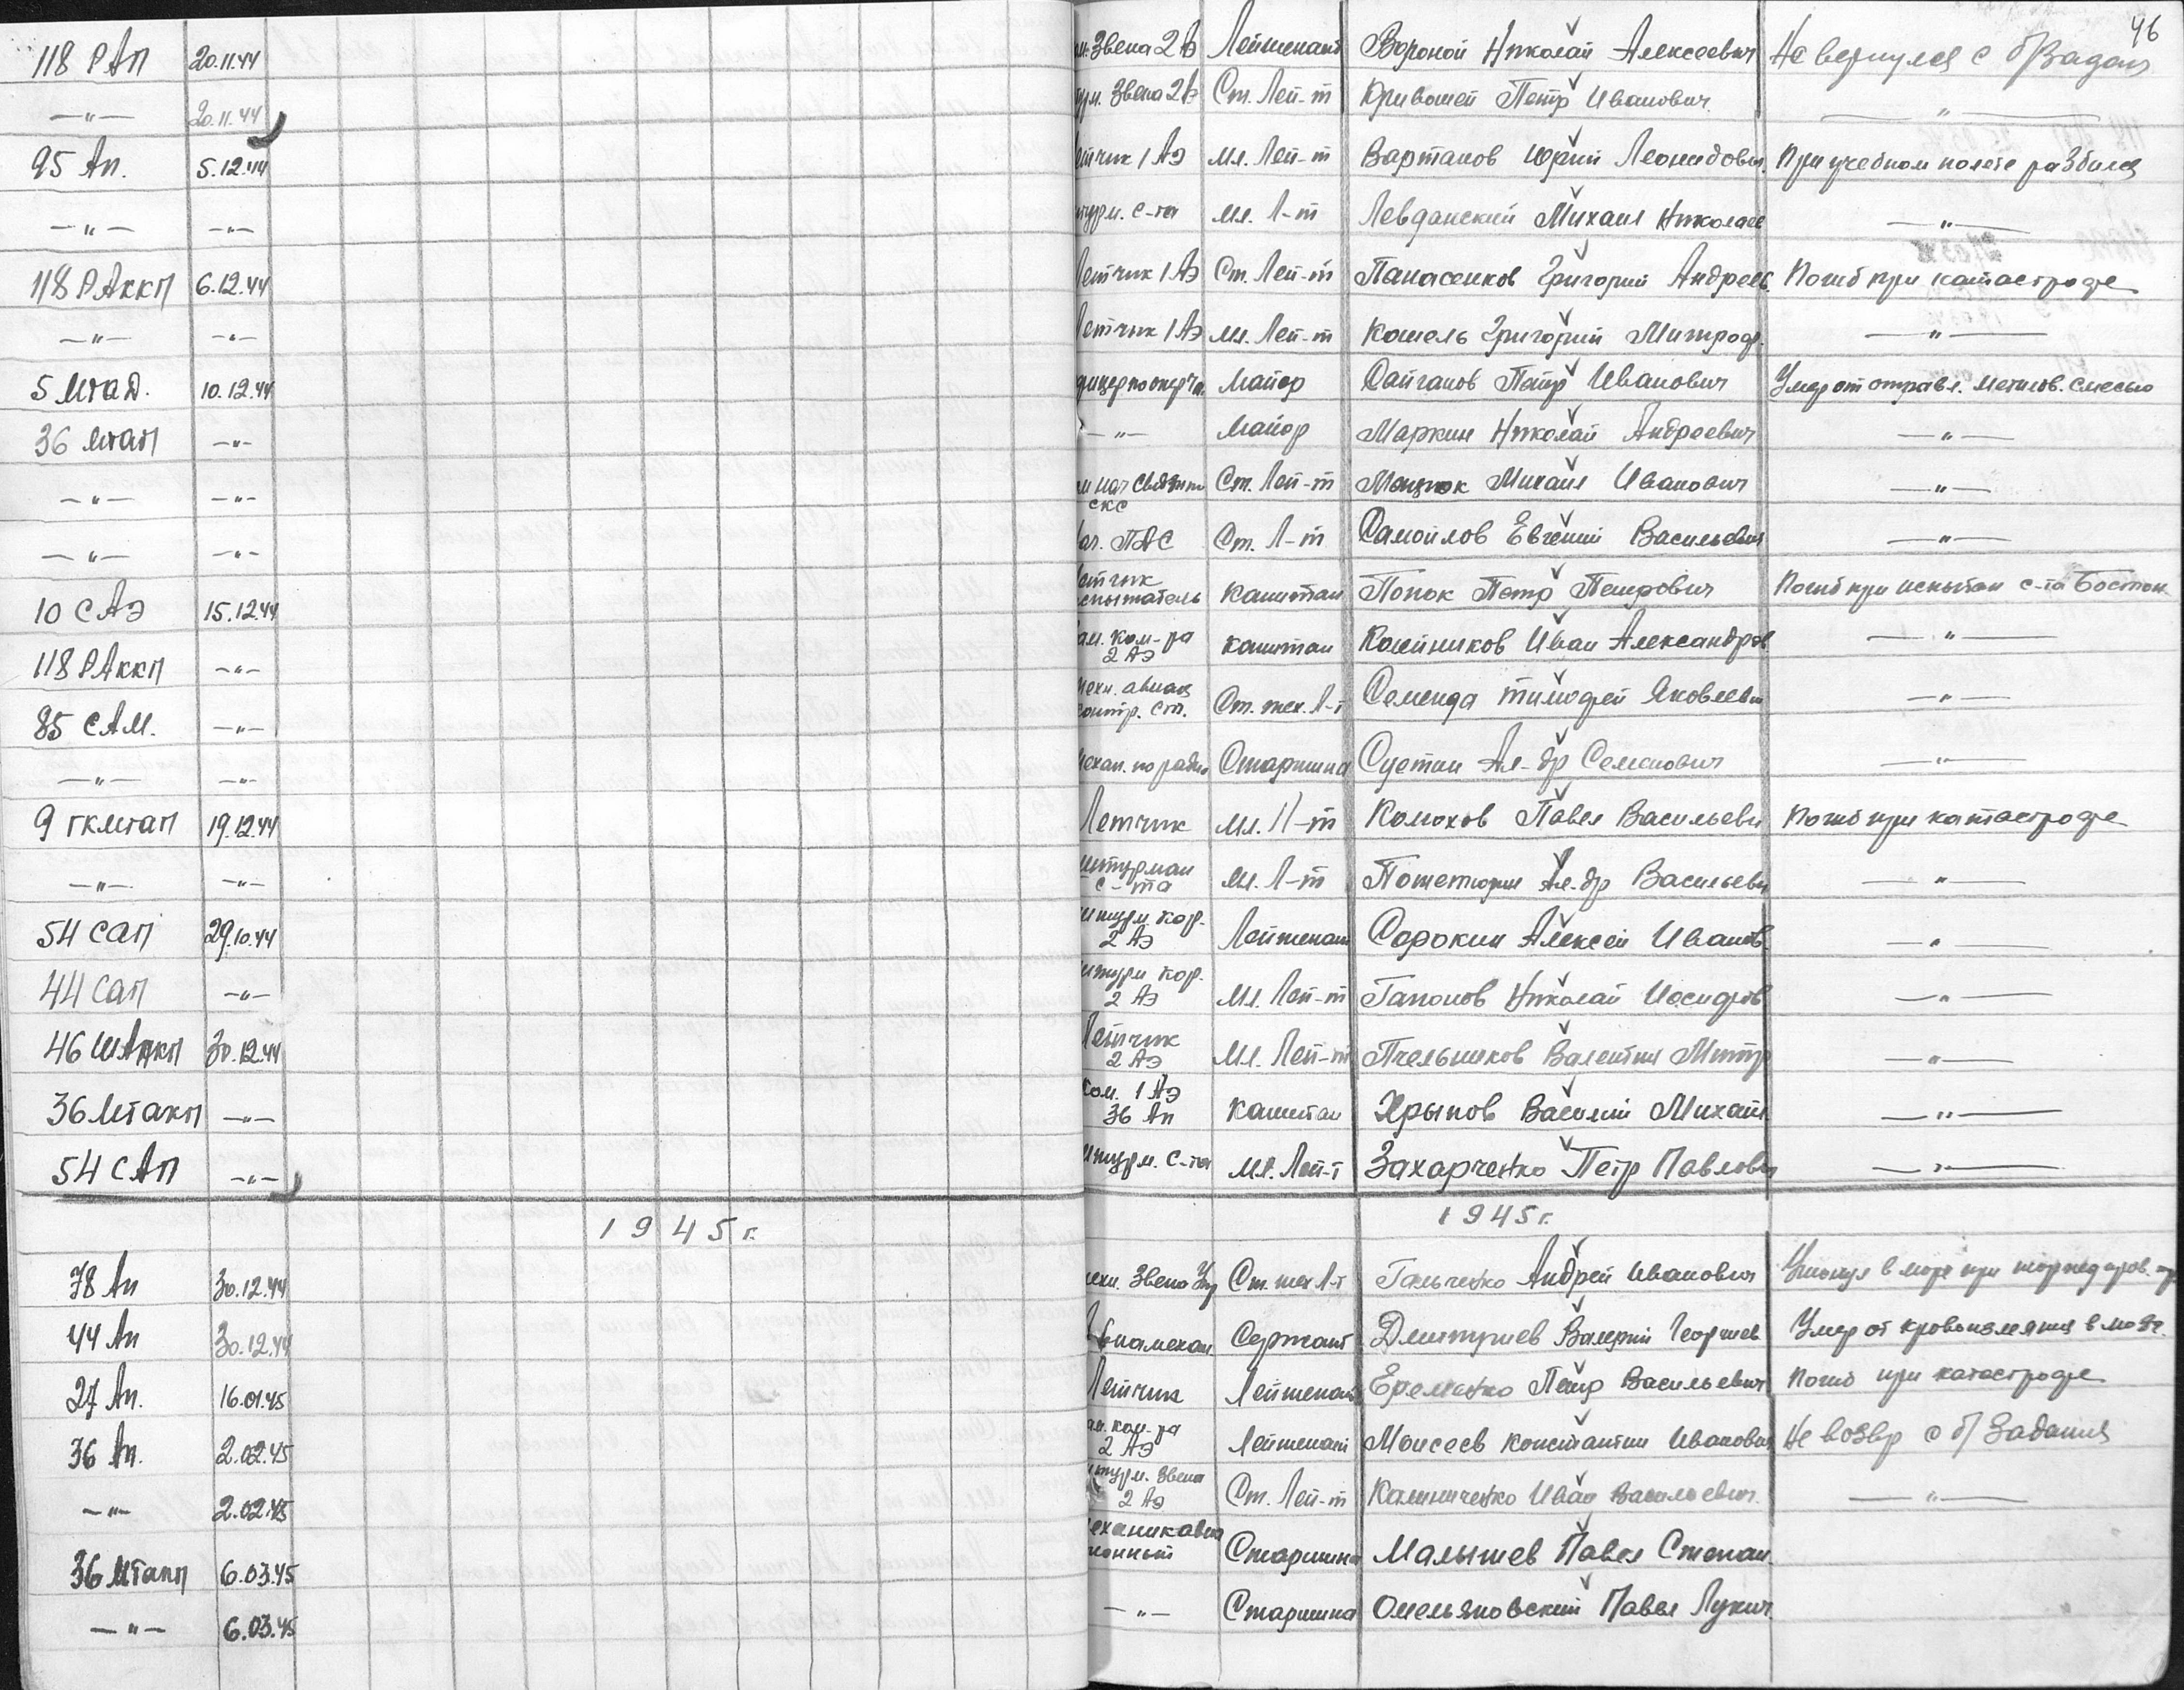 46
118 РАП 20.11.44 Звена 2 АЭ Лейтенант Вороной Николай Алексеевич Не вернулся с б/задан
—"— 20.11.44 Звена 2 АЭ Ст. Лей-т Кривошей Петр Иванович —"—
95 Ап. 5.12.44 етчик 1 АЭ Мл. Лей-т Вартанов Юрий Леонидович При учебном полете разбился
—"— —"— турм. с-та Мл. Л-т Левданский Михаил Николаев —"—
118 РАккп 6.12.44 Летчик 1 АЭ Ст. Лей-т Панасенков Григорий Андреев. Погиб при катастрофе
—"— —"— Летчик 1 АЭ Мл. Лей-т Кошель Григорий Митроф. —"—
5 мтаД. 10.12.44 фицер по опер ча. Майор Сайганов Петр Иванович Умер от отравл. метилов. смесью
36 мтап —"— —"— Майор Маркин Николай Андреевич —"—
—"— —"— нач связи по скс Ст. Лей-т Михаил Иванович —"—
—"— —"— ач. ПДС Ст. Л-т Самойлов Евгений Васильевич —"—
10 САЭ 15.12.44 етчик испытатель Капитан Попок Петр Петрович Погиб при испытан с-та Бостон
118 РАккп —"— ам. ком-ра 2 АЭ капитан Иван Александров —"—
85 САМ. —"— техн. авиац контр. ст. Ст. тех. Л-т Семенда Тимофей Яковлевич —"—
—"— —"— механ. по радио Старшина Суетин Ал-др Семенович —"—
9 гкмтап 19.12.44 Летчик Мл. Л-т Комохов Павел Васильеви Погиб при катастрофе
—"— —"— штурман с-та Мл. Л-т Ал-др Васильеви —"—
54 сап 29.10.44 штурм. кор. 2 АЭ Лейтенант Сорокин Алексей Иванов. —"—
44 сап —"— штурм кор. 2 АЭ Мл. Лей-т Гапонов Николай Иосифов —"—
46 ШАпкп 30.12.44 Летчик 2 АЭ Мл. Лей-т Пчельников Валентин Митр —"—
36 Мтакп —"— ком. 1 АЭ 36 Ап капитан Хрыпов Василий Михайл. —"—
54 САп —"— штурм. с-та Мл. Лей-т Захарченко Петр Павлович —"—
1945 г. 1945 г.
78 Ап 30.12.44 техн. Звена Ст. тех Л-т Гальченко Андрей Иванович Утонул в море при торпедиров.
44 Ап 30.12.44 Авиамехан Сержант Дмитриев Валерий Георгиев Умер от кровоизлияния в мозг.
27 Ап. 16.01.45 Летчик Лейтенант Еременко Петр Васильевич Погиб при катастрофе
36 Ап. 2.02.45 ам. ком-ра 2 АЭ Лейтенант Моисеев Константин Иванович Не возвр с б/задания
—"— 2.02.45 штурм. звена 2 АЭ Ст. Лей-т Калиниченко Иван Васильевич. —"—
36 Мтапп 6.03.45 еханик авиа ционный Старшина Малышев Павел Степан
—"— 6.03.45 —"— Старшина Омельяновский Павел Лукич